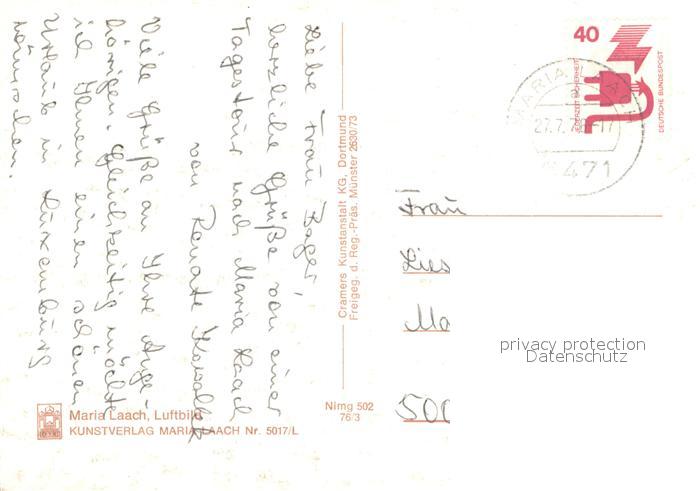 Liebe Frau
herzliche Grüße von einer
Tagestour nach Maria Laach
von Renate
Viele Grüße an Ihre Ange-
hörigen. Gleichzeitig möchte
ich Ihnen einen schönen
Urlaub in Luxemburg
wünschen.
Cramers Kunstanstalt KG, Dortmund
Freigeg. d. Reg.-Präs. Münster 2630/73
Maria Laach, Luftbild
KUNSTVERLAG MARIA LAACH Nr. 5017/L
Nimg 502
76/3
40
JEDERZEIT SICHERHEIT
DEUTSCHE BUNDESPOST
MARIA LAACH
27.7.7 -17
5471
Frau
Lies
Ma
500
privacy protection
Datenschutz